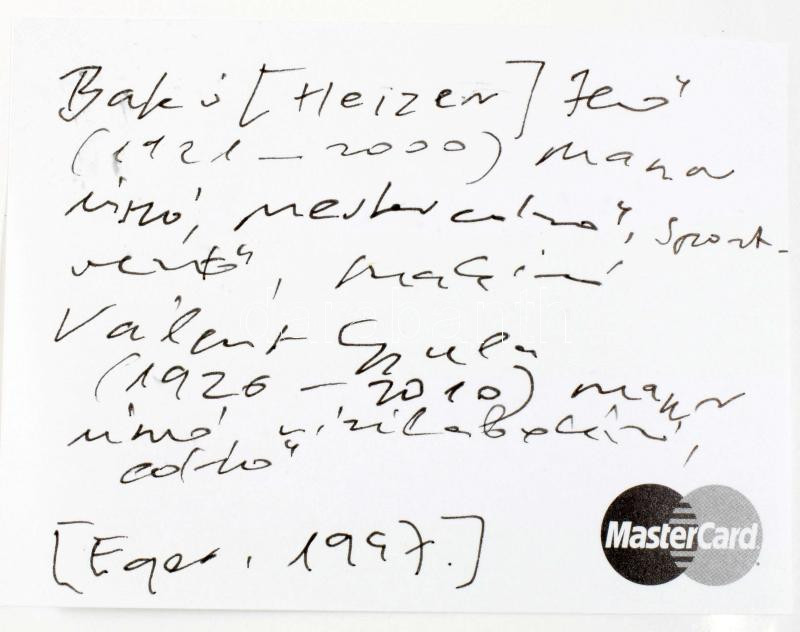 Bakó [Heizer] Jenő
(1921 – 2000) magyar
úszó, mesteredző, sport-
vezető,
Valent Gyula
(1926 – 2010) magyar
úszó, vízilabdázó,
edző
[Eger. 1997.]
MasterCard